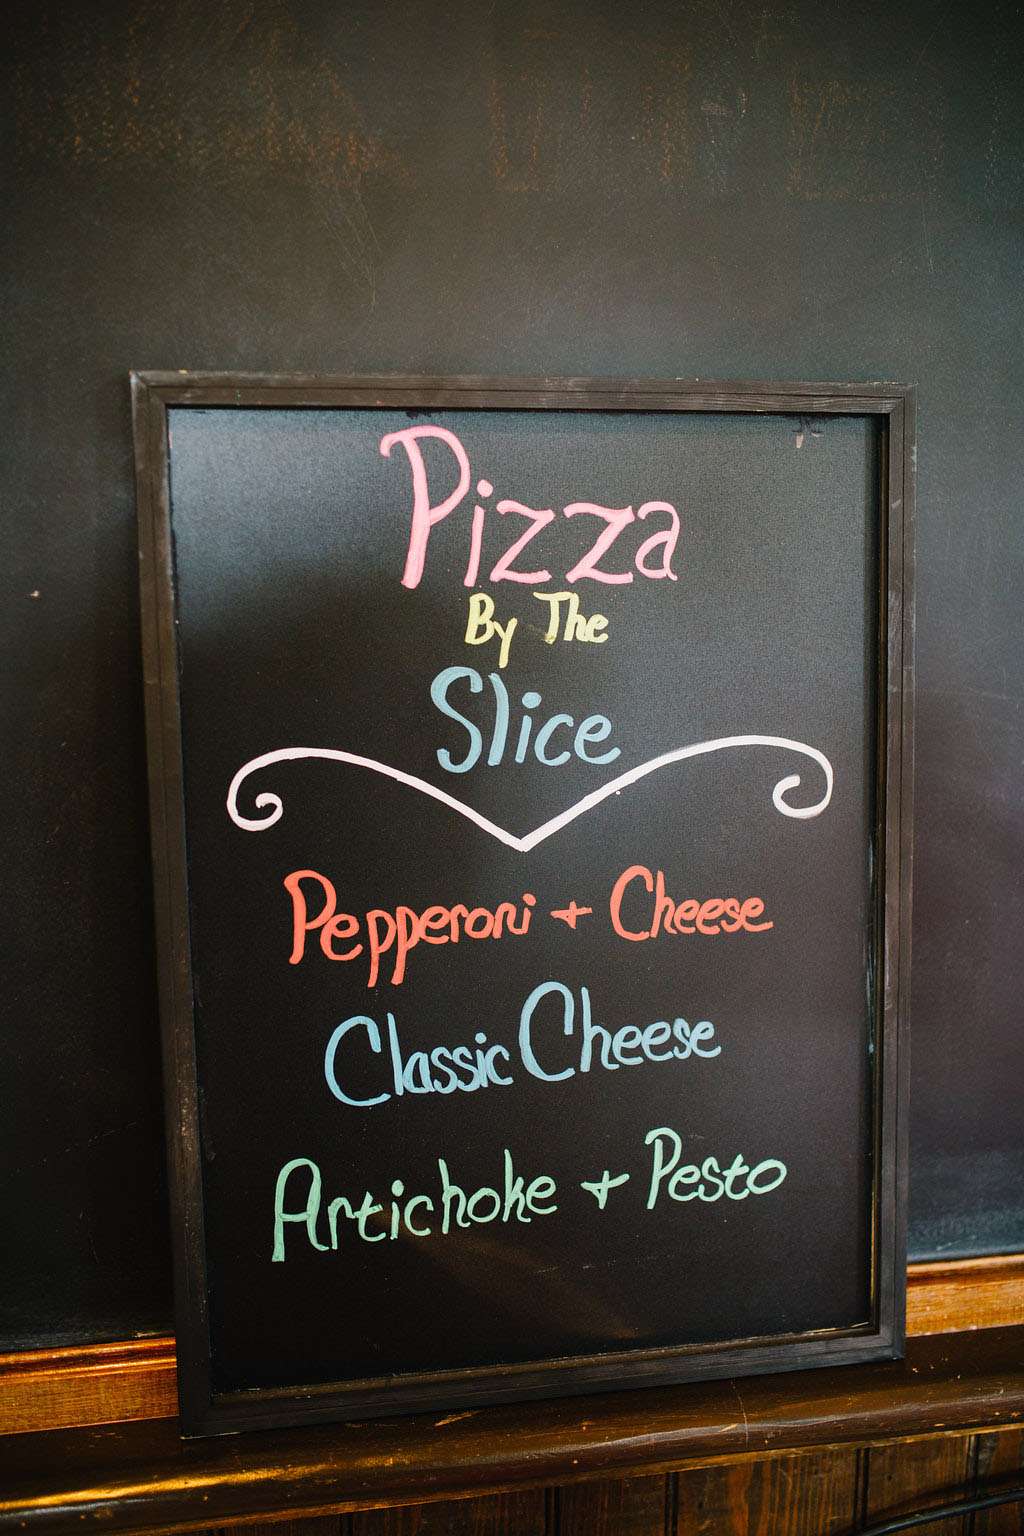 Pizza
By The
Slice
Pepperoni + Cheese
Classic Cheese
Artichoke + Pesto